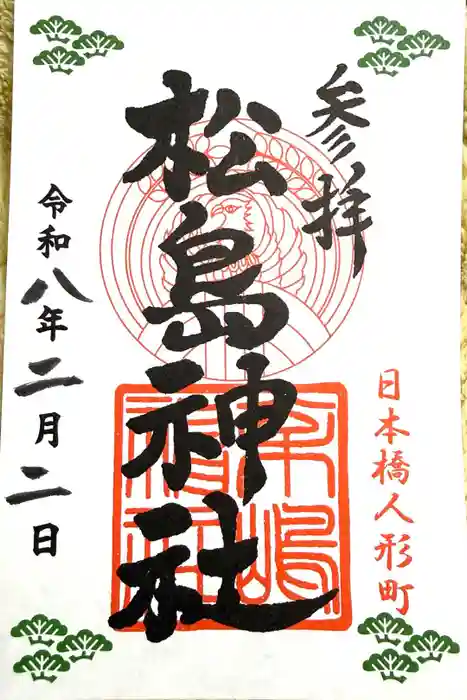 参拝
日本橋人形町
松島神社
令和八年二月二日